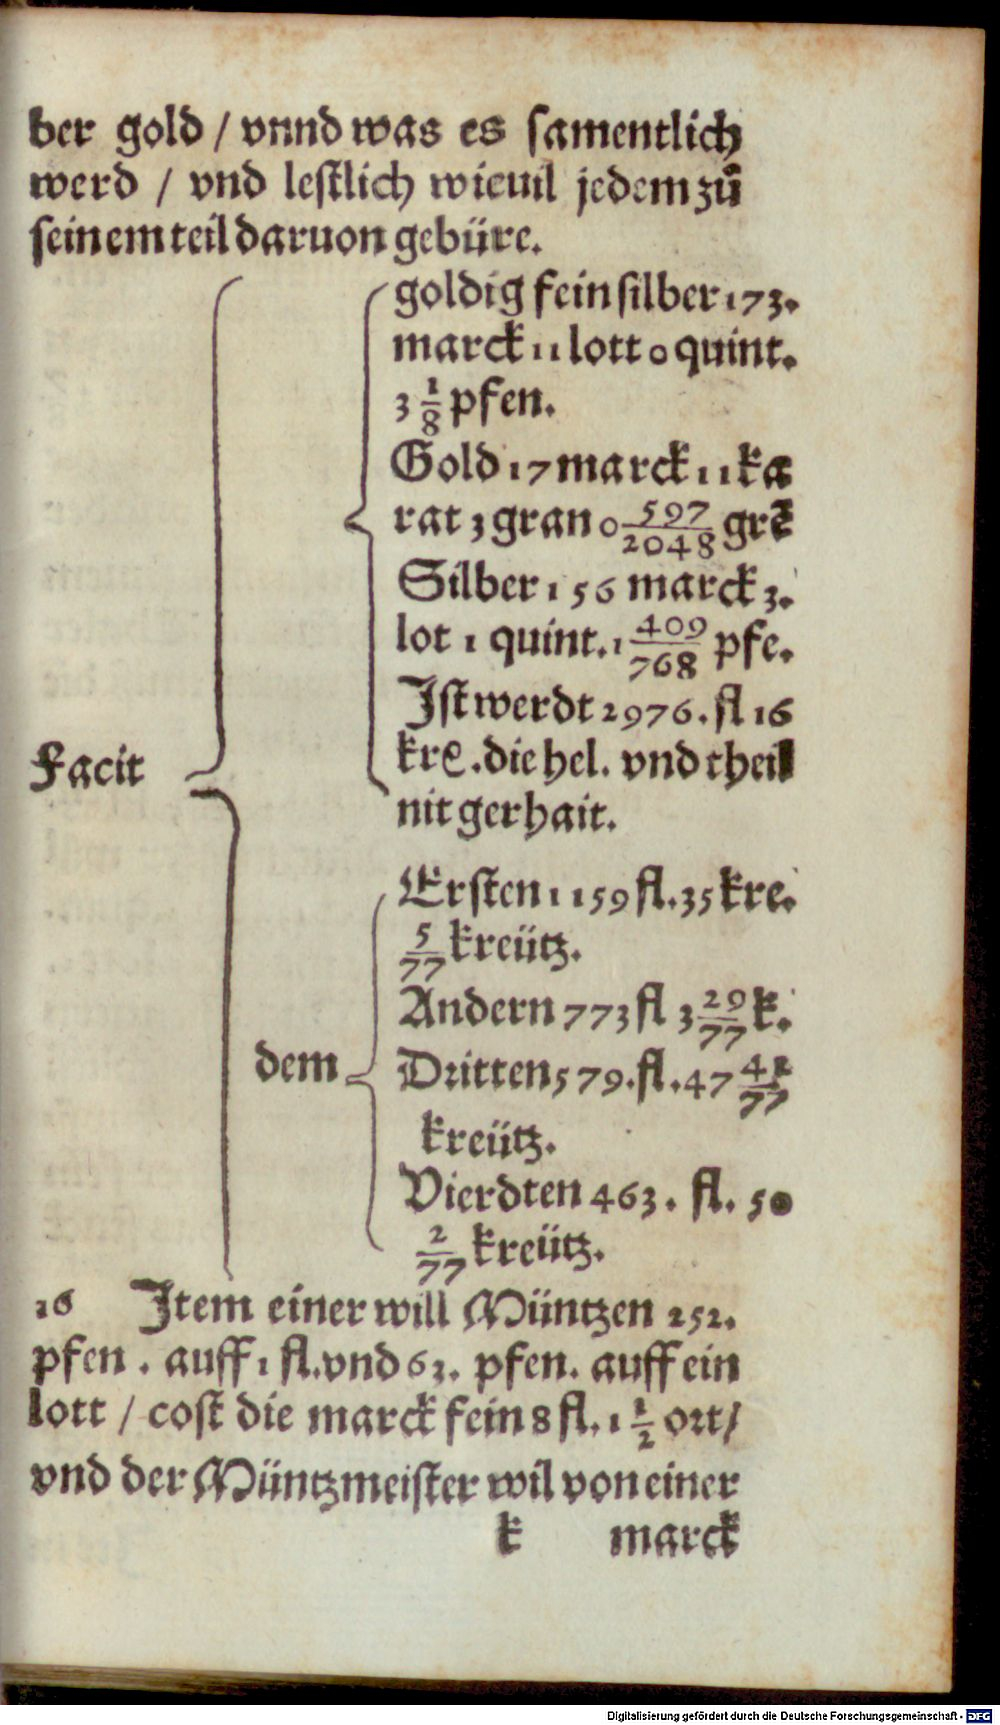 ber gold / vnnd was es samentlich
werd / vnd lestlich wieuil jedem zů
seinem teil daruon gebüre.
goldig fein silber 173.
marck 11 lott 0 quint.
3 1/8 pfen.
Gold 17 marck 11 ka
rat 3 gran 0 597/2048 grē
Silber 156 marck 3.
lot 1 quint. 1 409/768 pfe.
Ist werdt 2976. fl 16
kre. die hel. vnd theil
nit gerhait.
Facit
Ersten 1159 fl. 35 kre.
5/77 kreütz.
Andern 773 fl 3 29/77 k.
dem
Dritten 579. fl. 47 41/77
kreütz.
Vierdten 463. fl. 50
2/77 kreütz.
16 Item einer will Müntzen 252.
pfen. auff 1 fl. vnd 63. pfen. auff ein
lott / cost die marck fein 8 fl. 1 1/2 ort /
vnd der Müntzmeister wil von einer
k marck
Digitalisierung gefördert durch die Deutsche Forschungsgemeinschaft - DFG